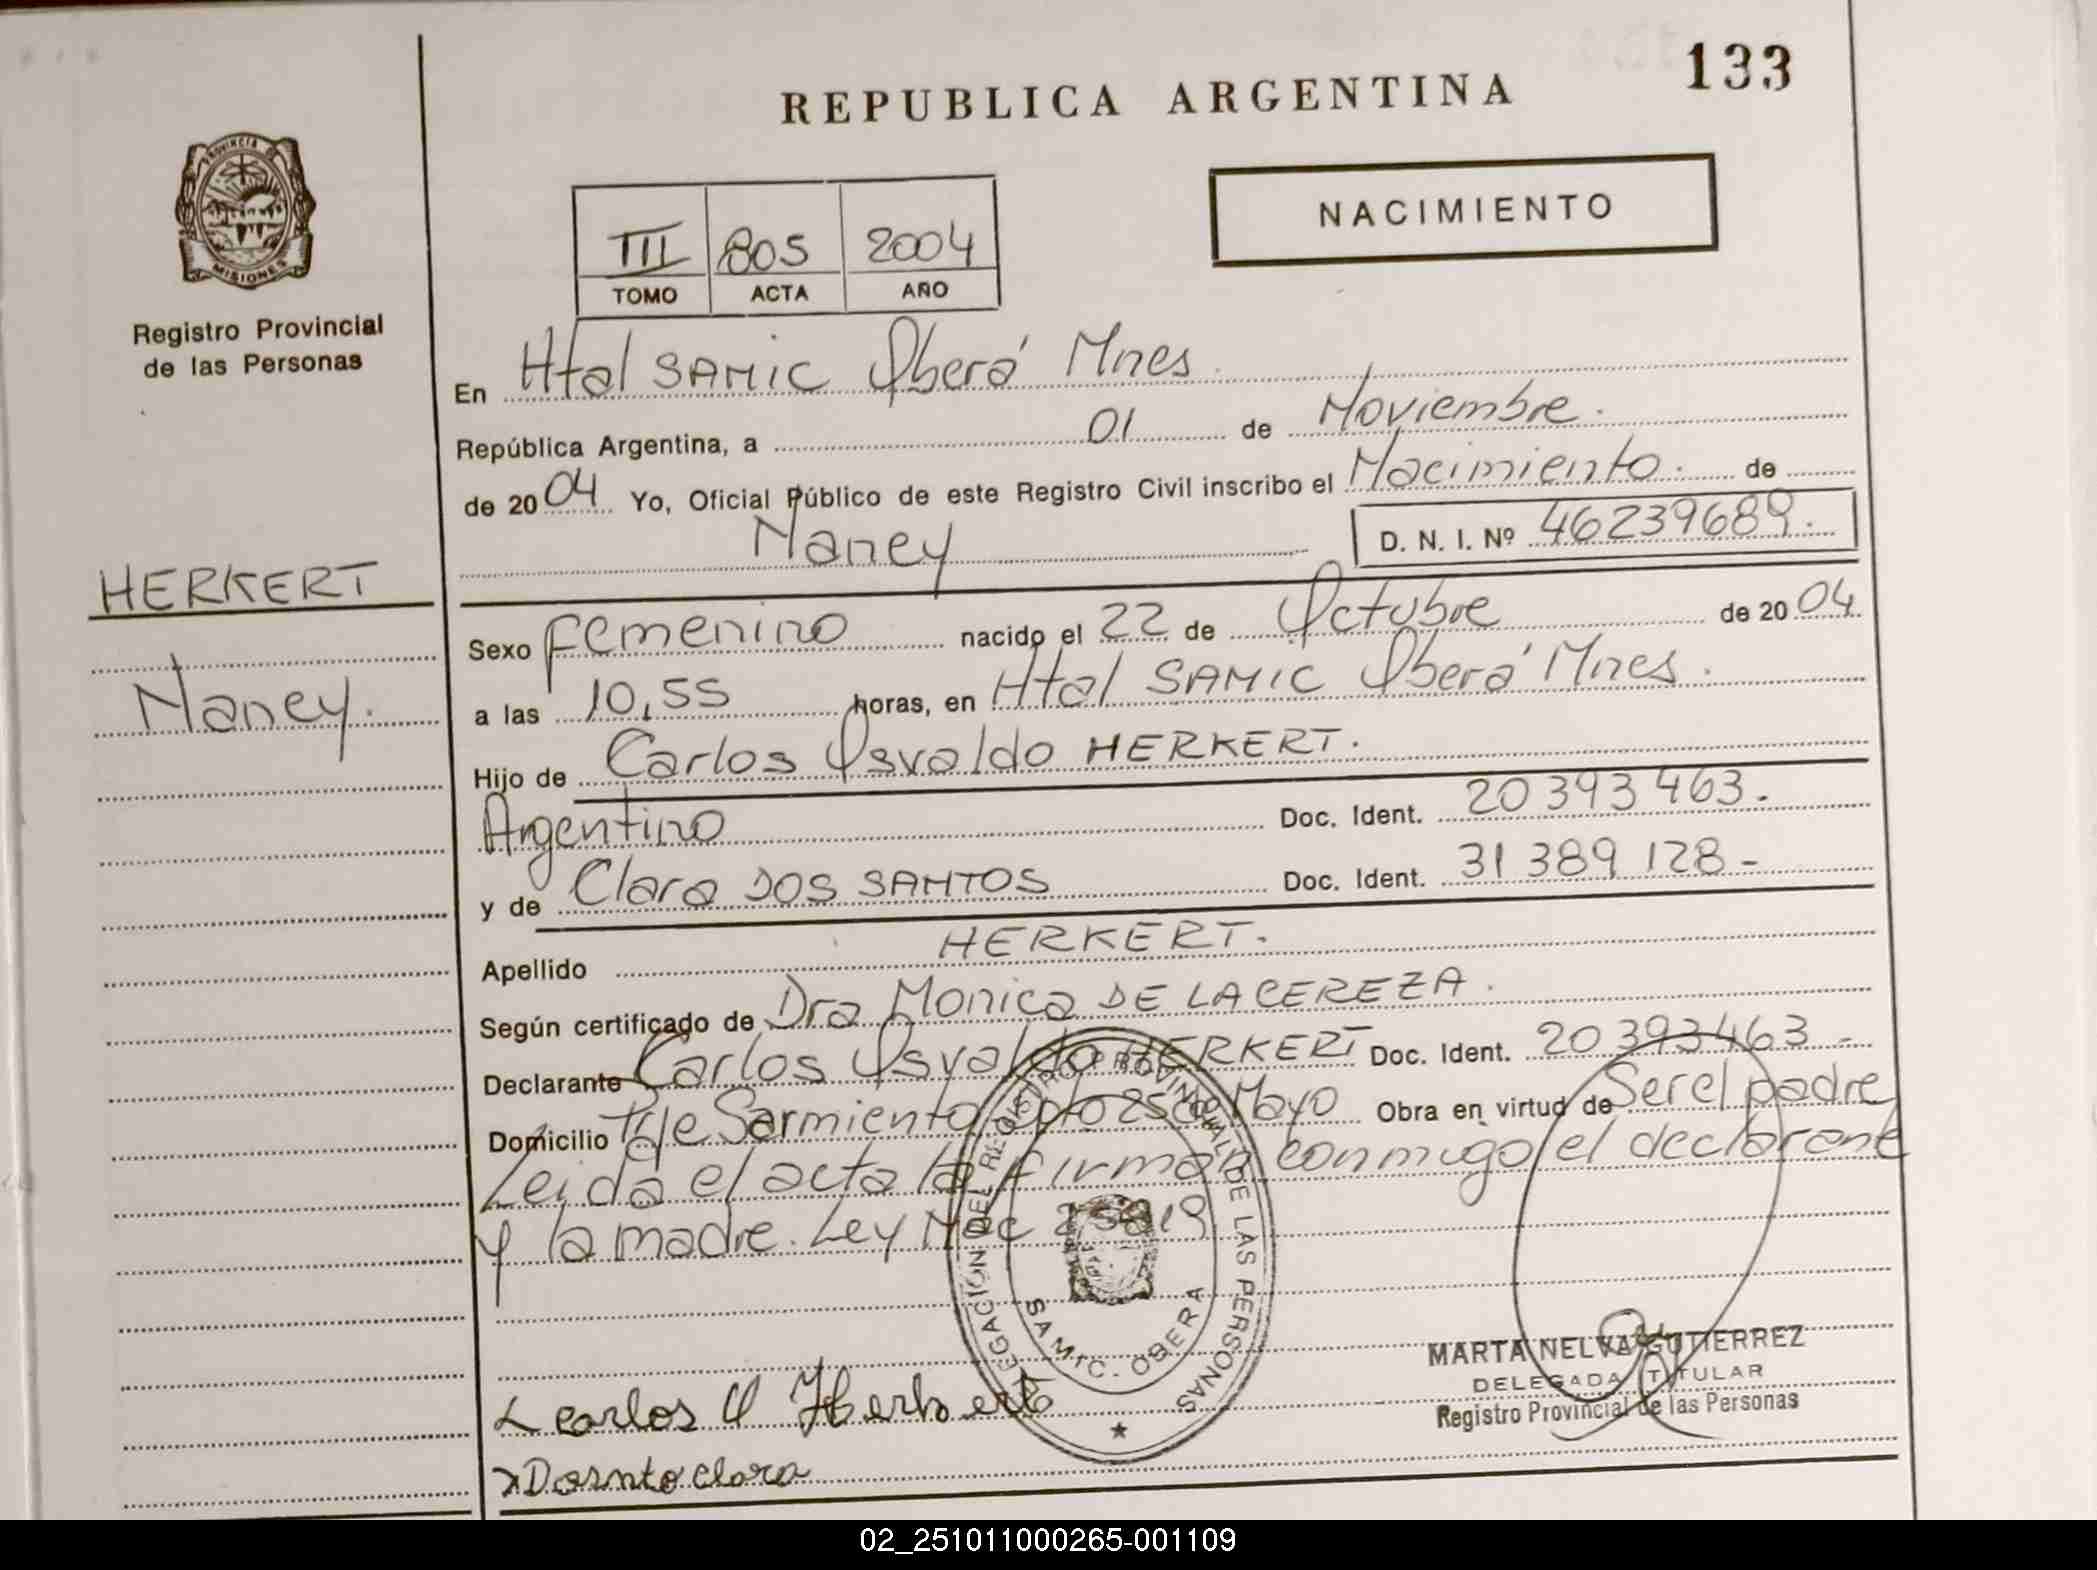 133
REPUBLICA ARGENTINA
NACIMIENTO
PROVINCIA DE
MISIONES
Registro Provincial
de las Personas
III 805 2004
TOMO ACTA AÑO
En Htal SAMIC Oberá Mnes
República Argentina, a 01 de Noviembre.
de 2004 Yo, Oficial Público de este Registro Civil inscribo el Nacimiento. de
Nancy D. N. I. Nº 46239689.
HERKERT
Nancy.
Sexo Femenino nacido el 22 de Octubre de 2004.
a las 10,55 horas, en Htal SAMIC Oberá Mnes.
Hijo de Carlos Osvaldo HERKERT.
Argentino Doc. Ident. 20 393 463.
y de Clara DOS SANTOS Doc. Ident. 31 389 128-
Apellido HERKERT.
Según certificado de Dra Monica DE LA CEREZA.
Declarante Carlos Osvaldo HERKERT Doc. Ident. 20 393463-
Domicilio Pje Sarmiento Dpto 25 de Mayo Obra en virtud de Ser el padre
Leida el acta la firman conmigo el declarante
y la madre. Ley Nac
DELEGACIÓN DEL REGISTRO PROVINCIAL DE LAS PERSONAS
SAMIC. OBERA
MARTA NELVA GUTIERREZ
DELEGADA TITULAR
Registro Provincial de las Personas
Carlos O Herkert
Dosnto clara
02_251011000265-001109